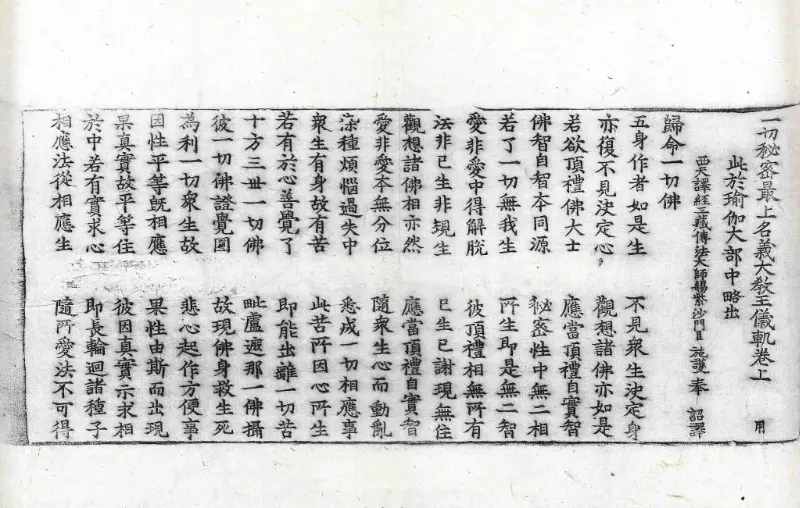 一切秘密最上名義大教王儀軌卷上　用
此於瑜伽大部中略出
西天譯経三藏傳法大師賜紫沙門臣施護奉　詔譯
歸命一切佛
五身作者如是生　不見衆生決定身
亦復不見決定心　觀想諸佛亦如是
若欲頂禮佛大士　應當頂禮自實智
佛智自智本同源　秘密性中無二相
若了一切無我生　所生即是無二智
愛非愛中得解脫　彼頂禮相無所有
法非已生非現生　已生已謝現無住
觀想諸佛相亦然　應當頂禮自實智
愛非愛本無分位　隨衆生心而動亂
染種煩惱過失中　悉成一切相應事
衆生有身故有苦　此苦所因心所生
若有於心善覺了　即能出離一切苦
十方三世一切佛　毗盧遮那一佛攝
彼一切佛證覺圓　故現佛身救生死
為利一切衆生故　悲心起作方便事
因性平等旣相應　果性由斯而出現
果真實故平等住　彼因真實示求相
於中若有實求心　即長輪迴諸種子
相應法從相應生　隨所愛法不可得